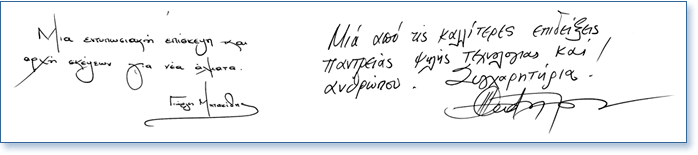 Μια εντυπωσιακή επίσκεψη και
αρχή σκέψεων για νέα άλματα.
Γιώργος
Μιά από τις καλλίτερες επιδείξεις
παντρειάς ψηλής τεχνολογίας και
ανθρώπου. Συγχαρητήρια.